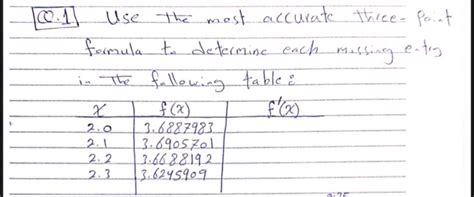 Q.1 Use the most accurate three-point
formula to determine each missing entry
in the following table:
x f(x) f'(x)
2.0 3.6887983
2.1 3.6905701
2.2 3.6688192
2.3 3.6245909